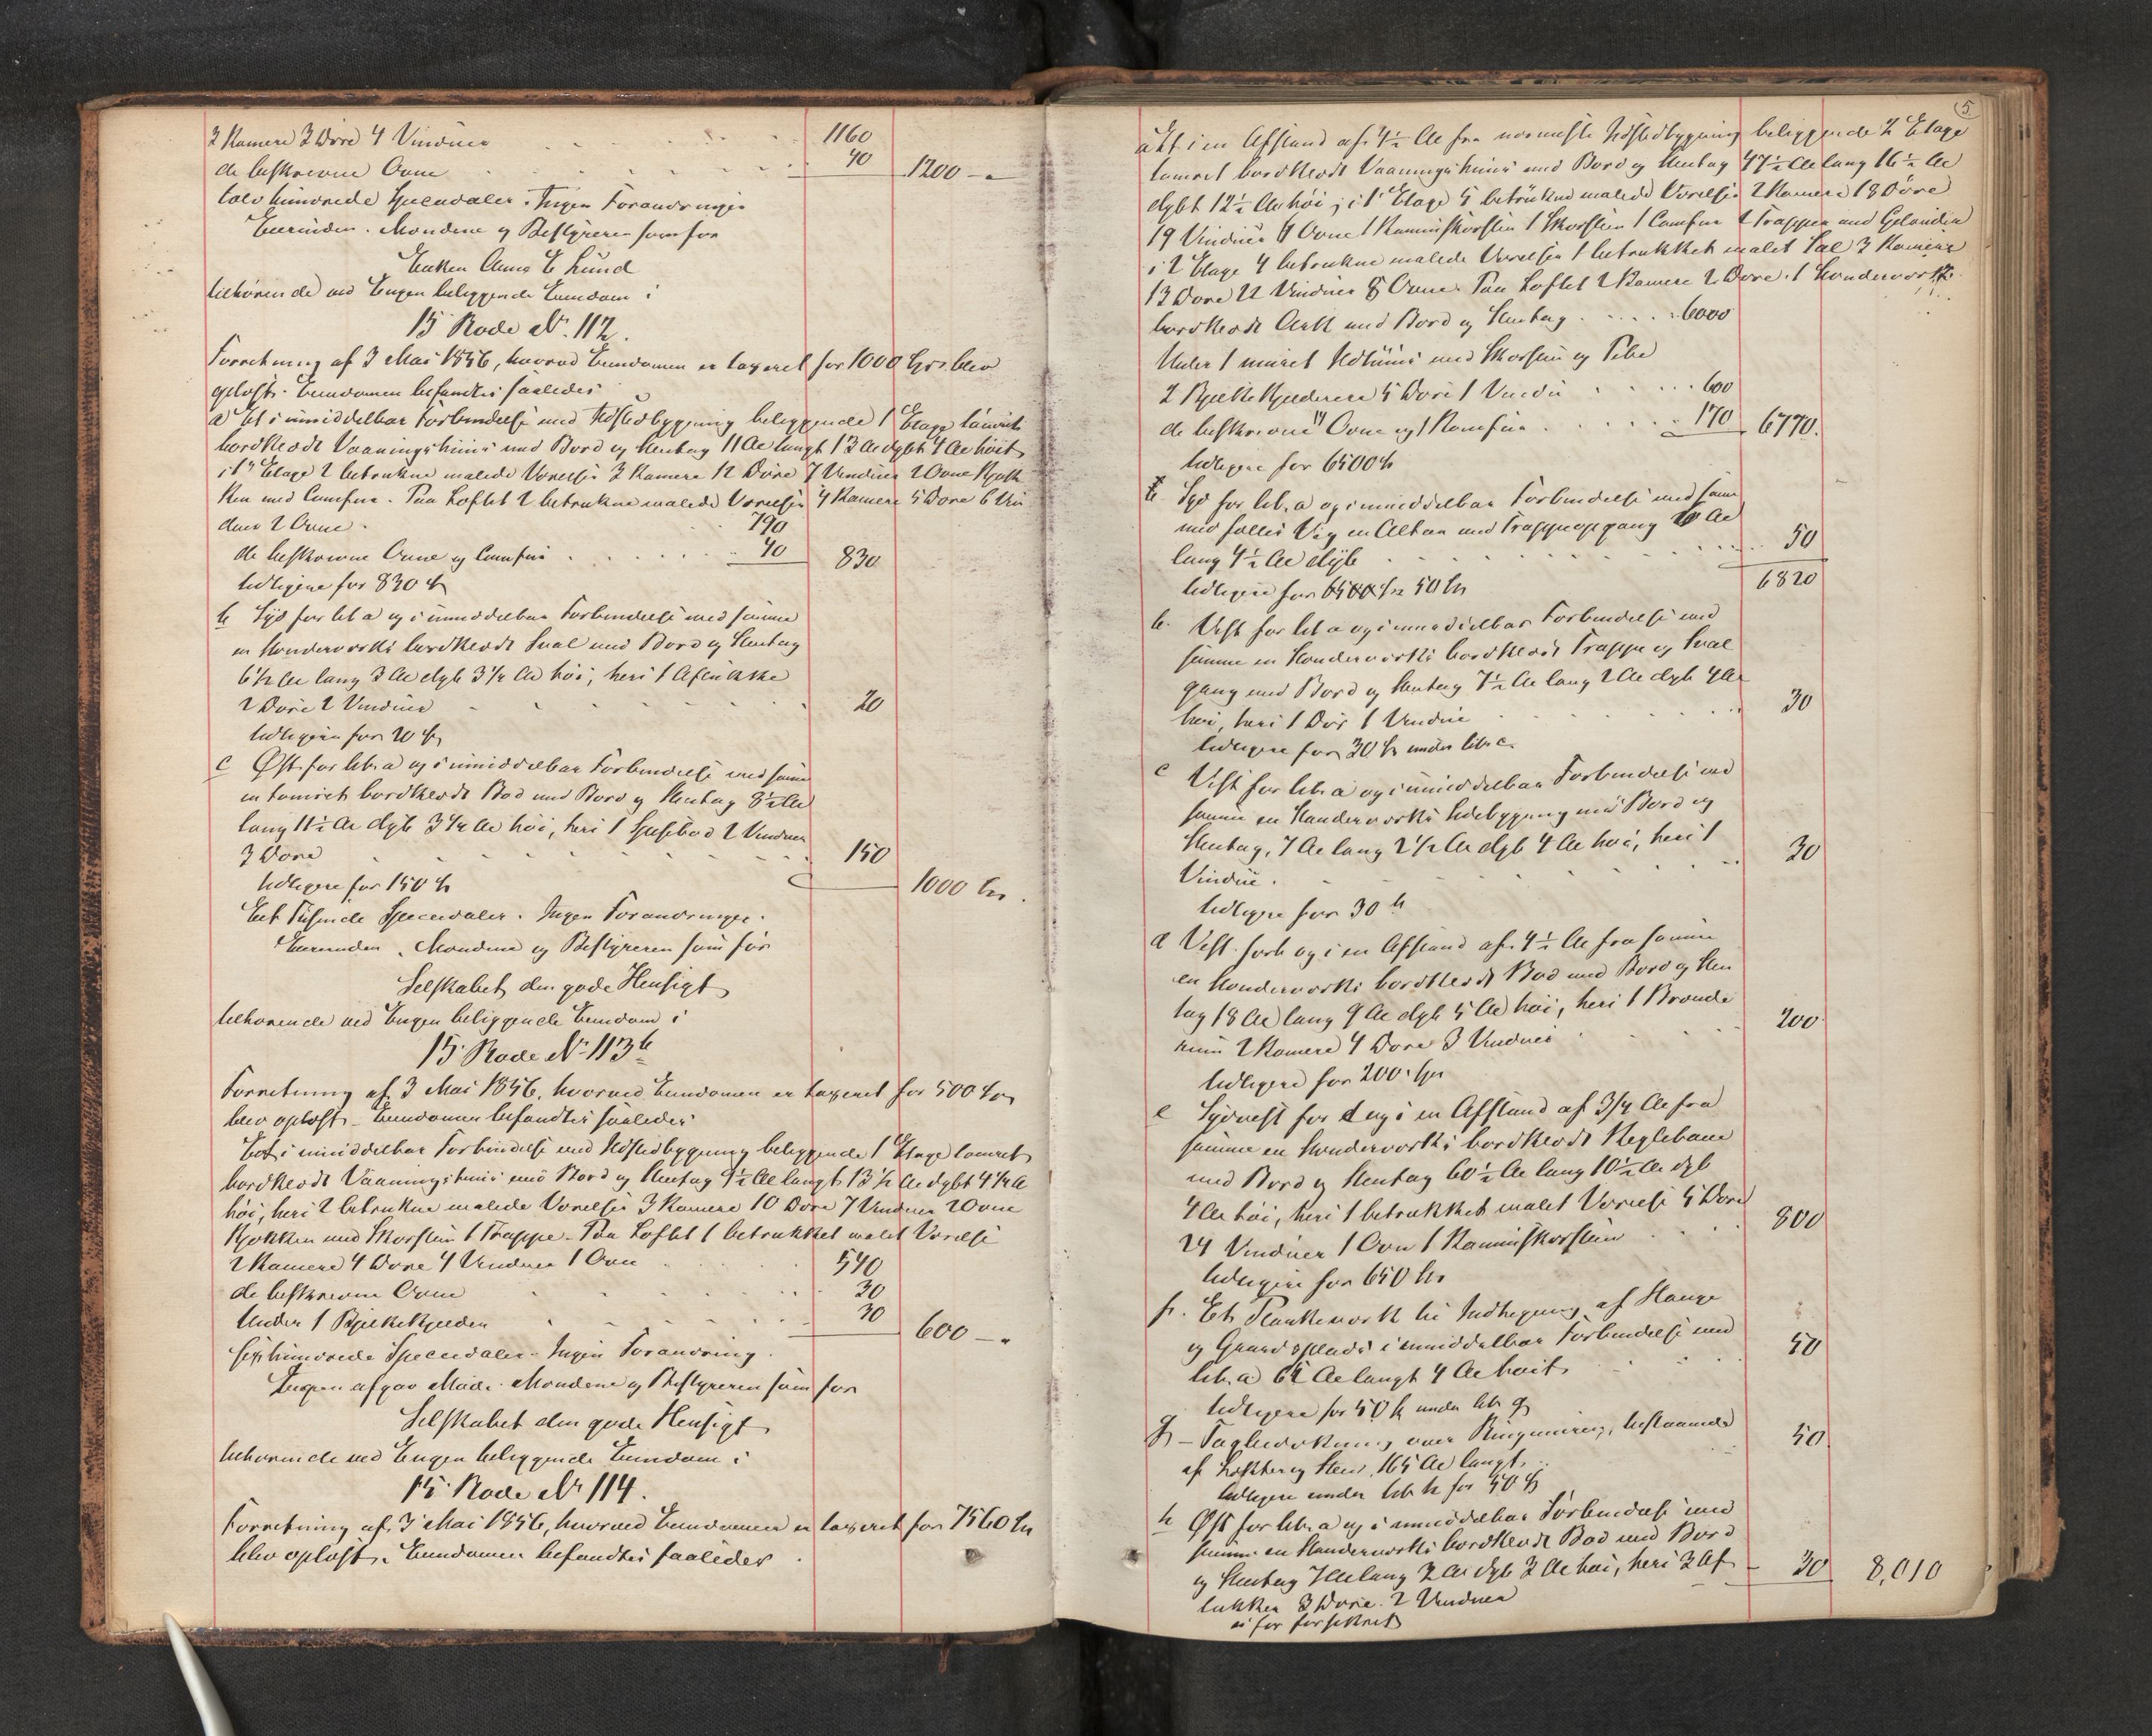 3 Kamere 3 Döre 4 Vinduer 1160
de beskrevne Ovne 40 1200 –
tolv hundrede Speciedaler. Ingen Forandringer
Eierinden. Mændene og Bestyreren som før
Enken Anna E Lund
tilhörende ved Engen beliggende Eiendom i
15 Rode No. 112.
Forretning af 3 Mai 1856, hvorved Eiendommen er taxeret for 1000 Spd blev
oplæst. Eiendommen befandtes saaledes
a Et i umiddelbar Forbindelse med Udstedbygning beliggende 1 Etages tömret
bordklædt Vaaningshuus med Bord og Steentag 11 Al langt 13 Al dybt 4 Al höit
i 1ste Etage 2 betrukne malede Værelser 3 Kamere 12 Döre 7 Vinduer 2 Ovne Kjök
ken med Comfur. Paa Loftet 2 betrukne malede Værelser 4 Kamere 5 Döre 6 Vin
duer 2 Ovne. 790
de beskrevne Ovne og Comfur 40 830
tidligere for 830
b Syd for litr a og i umiddelbar Forbindelse med samme
en Stænderværks bordklædt Sval med Bord og Steentag
6½ Al lang 3 Al dyb 3½ Al höi, heri 1 Aflukke
2 Döre 2 Vinduer 20
tidligere for 20
c Øst for litr. a og i umiddelbar Forbindelse med samme
en tömret bordklædt Bod med Bord og Steentag 8½ Al
lang 11½ Al dyb 3¼ Al höi, heri 1 2 Vinduer
3 Döre 150
tidligere for 150 1000
Eet Tusinde Speciedaler. Ingen Forandringer.
Eierinden. Mændene og Bestyreren som för
Selskabet den gode Hensigt
tilhörende ved Engen beliggende Eiendom i
15 Rode No 113b
Forretning af 3 Mai 1856, hvorved Eiendommen er taxeret for 500
blev oplæst. Eiendommen befandtes saaledes
Et i umiddelbar Forbindelse med Udstedbygning beliggende 1 Etages tömret
bordklædt Vaaningshuus med Bord og Steentag 9½ Al langt 13½ Al dybt 4¼ Al
höi, heri 2 betrukne malede Værelser 3 Kamere 10 Döre 7 Vinduer 2 Ovne
Kjökken med Skorsteen 1 Trappe. Paa Loftet 1 betrukket malet Værelse
2 Kamere 4 Döre 4 Vinduer 1 Ovn 540
de beskrevne Ovne 30
Under 1 Bjelkekjelder 30 600 –
sexhundrede Speciedaler. Ingen Forandring.
Ingen afgav Möde. Mændene og Bestyreren som för
Selskabet den gode Hensigt
tilhörende ved Engen beliggende Eiendom i
15 Rode No 114.
Forretning af 3 Mai 1856, hvorved Eiendommen er taxeret for 7560
blev oplæst. Eiendommen befandtes saaledes
5
a Et i en Afstand af 4½ Al fra nærmeste Udstedbygning beliggende 2 Etages
tömret bordklædt Vaaningshuus med Bord og Steentag 47½ Al lang 16½ Al
dybt 12½ Al höi; i 1 Etage 5 betrukne malede Værelser 2 Kamere 18 Döre
19 Vinduer Ovne 1 Kaminskorsten 1 Skorsten 1 Comfur 2 Trapper med Gelænder
i 2 Etage 4 betrukne malede Værelser 1 betrukket malet Sal 3 Kamere
13 Döre 22 Vinduer 8 Ovne. Paa Loftet 2 Kamere 2 Döre. 1 Stænderværks
bordklædt Ark med Bord og Steentag 6000
Under 1 muret Udhuus med Skorsten og Pibe
2 Bjelkekjeldere 5 Döre 1 Vindu 600
de beskrevne Ovne og 1 Komfur 170 6770.
tidligere for 6500
Syd for litr. a og i umiddelbar Forbindelse med samme
med fælles Væg en Altan med Trappeopgang Al
lang 4½ Al dyb 50
tidligere for 50 6820
b. Vest for litr a og i umiddelbar Forbindelse med
samme en Stænderværks bordklædt Trappe og Sval
gang med Bord og Steentag 7½ Al lang 2 Al dyb 4 Al
höi, heri 1 Dör 1 Vindue 30
tidligere for 30 under litr c.
c Vest for litr. a og i umiddelbar Forbindelse med
samme en Stænderværks Udbygning med Bord og
Steentag, 7 Al lang 2½ Al dyb 4 Al höi, heri 1
Vindue. 30
tidligere for 30
d Vest for b og i en Afstand af 4½ Al fra samme
en Stænderværks bordklædt Bod med Bord og Steen
tag 18 Al lang 9 Al dyb 5 Al höi, heri 1 Brænde
rum 2 Kamere 4 Döre 3 Vinduer 200
tidligere for 200
e Sydvest for d og i en Afstand af 3¼ Al fra
samme en Stænderværks bordklædt Keglebane
med Bord og Steentag 60½ Al lang 10½ Al dyb
4 Al höi, heri 1 betrukket malet Værelse 5 Döre
24 Vinduer 1 Ovn 1 Kaminskorsten 800
tidligere for 650
f. Et Plankeværk til Indhegning af Hauge
og Gaardsplads i umiddelbar Forbindelse med
litr. a 64 Al langt 4 Al höit 50
tidligere for 50 under litr g
g – Tagbedækning over Ringmuren, bestaaende
af Lægter og Steen 165 Al langt 50
tidligere under litr h for 50
h Øst for litr. a og i umiddelbar Forbindelse med
samme en Stænderværks bordklædt Bod med Bord
og Steentag 7 Al lang 3 Al dyb 3 Al höi, heri 3 Af 30 8,010
lukker 3 Döre. 2 Vinduer
ei för forsikret